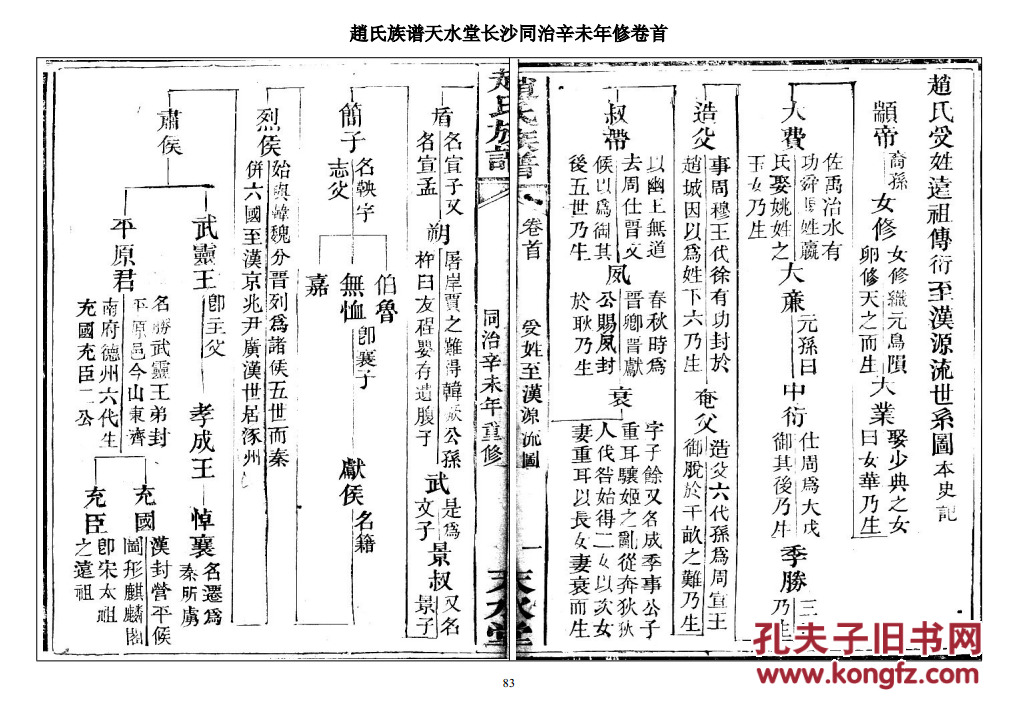 趙氏族谱天水堂长沙同治辛未年修卷首
趙氏受姓遠祖傳衍至漢源流世系圖本史記
顓帝
裔孫
女修
女修織元鳥隕
卵修天之而生
大業
娶少典之女
曰女華乃生
大費
佐禹治水有
功舜賜姓嬴
氏娶姚姓之
玉女乃生
大廉
元孫曰
中衍
仕周爲大戊
御其後乃生
季勝
乃生
造父
事周穆王代徐有功封於
趙城因以爲姓下六乃生
奄父
造父六代孫爲周宣王
御脫於千畝之難乃生
叔帶
以幽王無道
去周仕晋文
侯以爲御其
後五世乃生
夙
春秋時爲
晋卿晋獻
公賜夙封
於耿乃生
衰
字子餘又名成季事公子
重耳驪姬之亂從奔狄狄
人伐咎始得二女以次女
妻重耳以長女妻衰而生
趙氏族譜
卷首
受姓至漢源流圖
一
天水堂
同治辛未年重修
盾
名宣子又
名宣孟
朔
屠岸賈之難得韓厥公孫
杵曰友程嬰存遺腹子
武
是爲
文子
景叔
又名
景子
簡子
名鞅字
志父
伯魯
無恤
卽襄子
嘉
獻侯
名籍
烈侯
始與韓魏分晋列爲諸侯五世而秦
併六國至漢京兆尹廣漢世居涿州
肅侯
武靈王
卽主父
孝成王
悼襄
名遷爲
秦所虜
平原君
名勝武靈王弟封
平原邑今山東齊
南府德州六代生
充國充臣二公
充國
漢封營平侯
圖形麒麟閣
充臣
卽宋太祖
之遠祖
孔夫子旧书网
www.kongfz.com
83